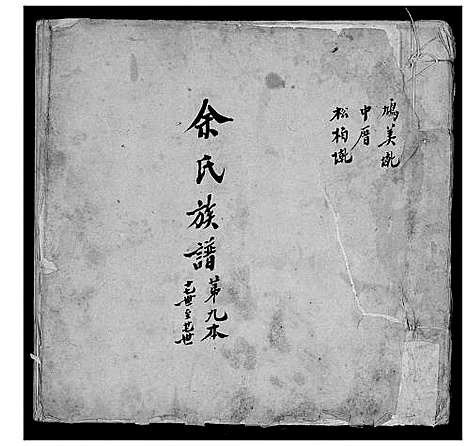 鳩美墘
中厝
松柏墘
余氏族譜
第九本
世至世